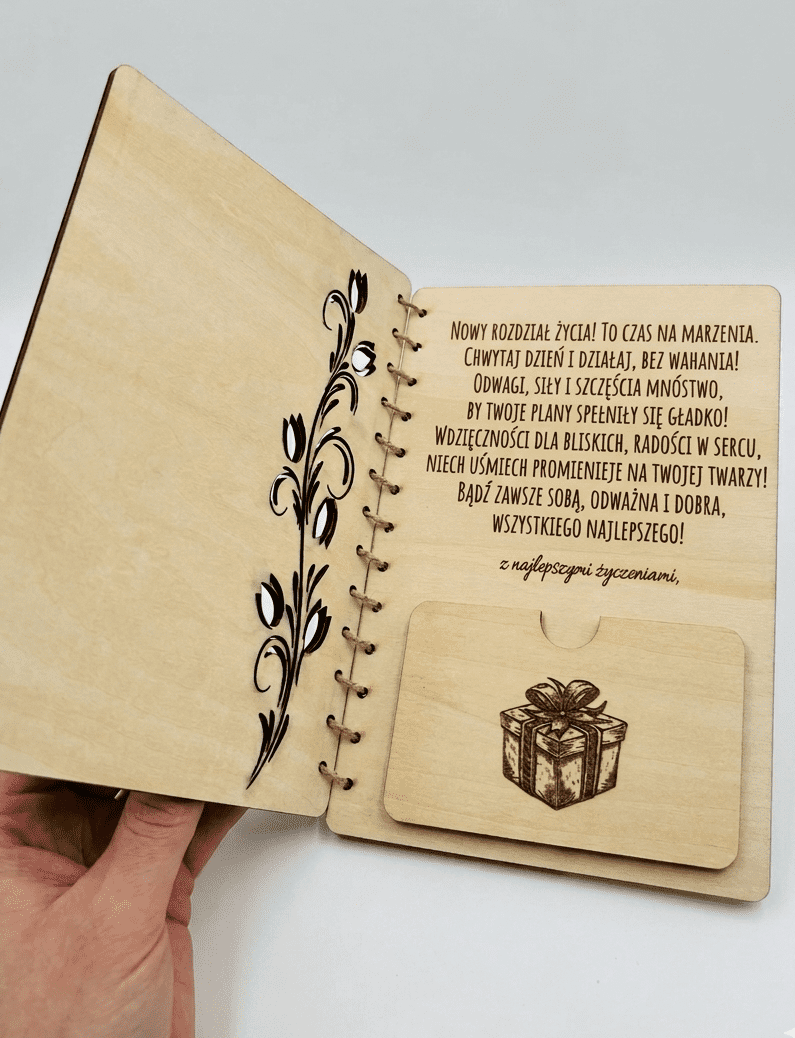 NOWY ROZDZIAŁ ŻYCIA! TO CZAS NA MARZENIA.
CHWYTAJ DZIEŃ I DZIAŁAJ, BEZ WAHANIA!
ODWAGI, SIŁY I SZCZĘŚCIA MNÓSTWO,
BY TWOJE PLANY SPEŁNIŁY SIĘ GŁADKO!
WDZIĘCZNOŚCI DLA BLISKICH, RADOŚCI W SERCU,
NIECH UŚMIECH PROMIENIEJE NA TWOJEJ TWARZY!
BĄDŹ ZAWSZE SOBĄ, ODWAŻNA I DOBRA,
WSZYSTKIEGO NAJLEPSZEGO!
z najlepszymi życzeniami,